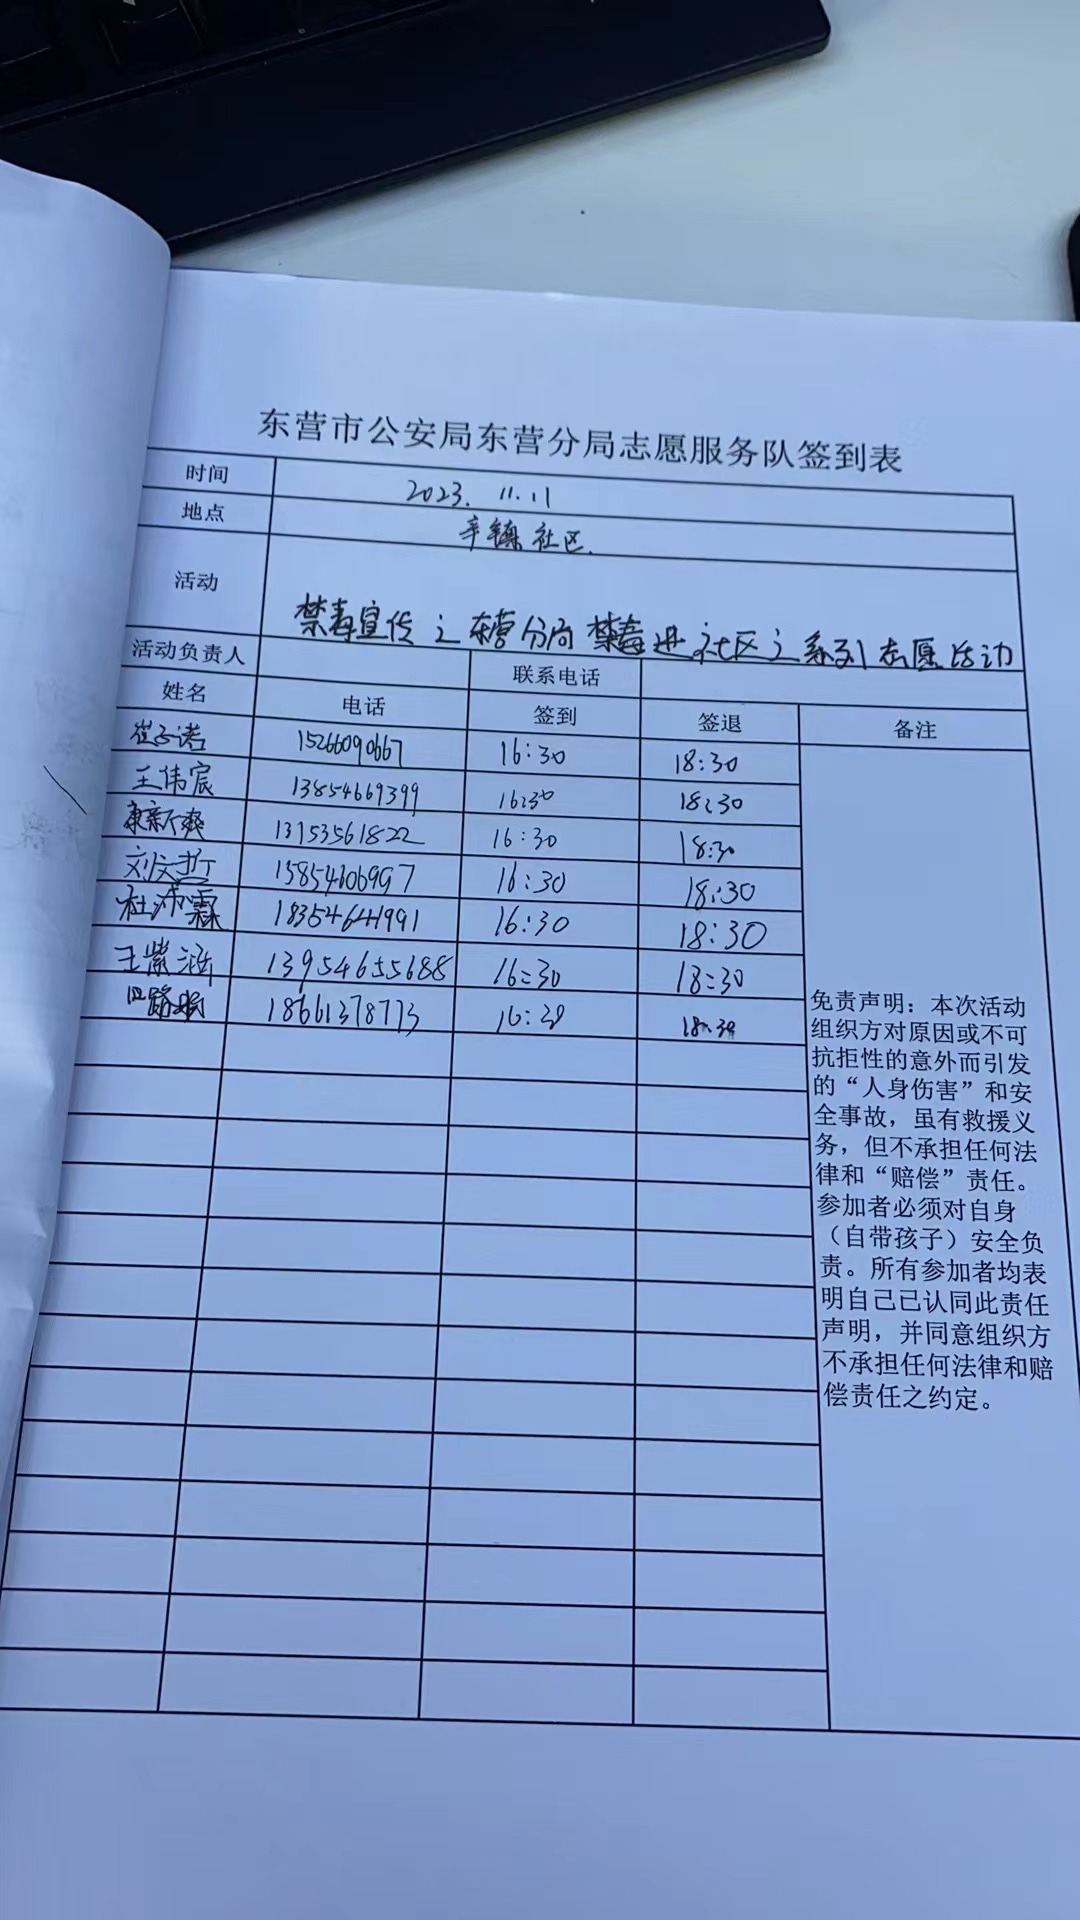 东营市公安局东营分局志愿服务队签到表
时间 2023. 11.11
地点 辛镇社区.
活动 禁毒宣传之东营分局禁毒进社区之系列志愿活动
活动负责人 联系电话
姓名 电话 签到 签退 备注
崔子诺 15266090667 16:30 18:30
王伟宸 13854669399 16:30 18:30
康新爽 13153561822 16:30 18:30
刘文哲 15854606997 16:30 18:30
杜沛霖 18354641991 16:30 18:30
王紫涵 13954655688 16:30 18:30
18661378773 16:30 18:30
免责声明：本次活动
组织方对原因或不可
抗拒性的意外而引发
的“人身伤害”和安
全事故，虽有救援义
务，但不承担任何法
律和“赔偿”责任。
参加者必须对自身
（自带孩子）安全负
责。所有参加者均表
明自己已认同此责任
声明，并同意组织方
不承担任何法律和赔
偿责任之约定。